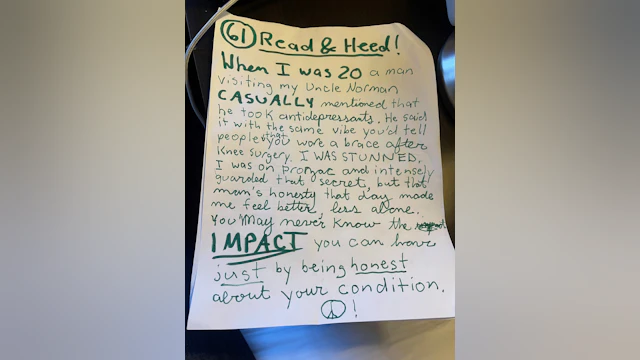 61 Read & Heed!
When I was 20 a man
visiting my Uncle Norman
CASUALLY mentioned that
he took antidepressants. He said
it with the same vibe you'd tell
people that you wore a brace after
Knee surgery. I WAS STUNNED.
I was on Prozac and intensely
guarded that secret, but that
man's honesty that day made
me feel better, less alone.
You may never know the
IMPACT you can have
just by being honest
about your condition.
!